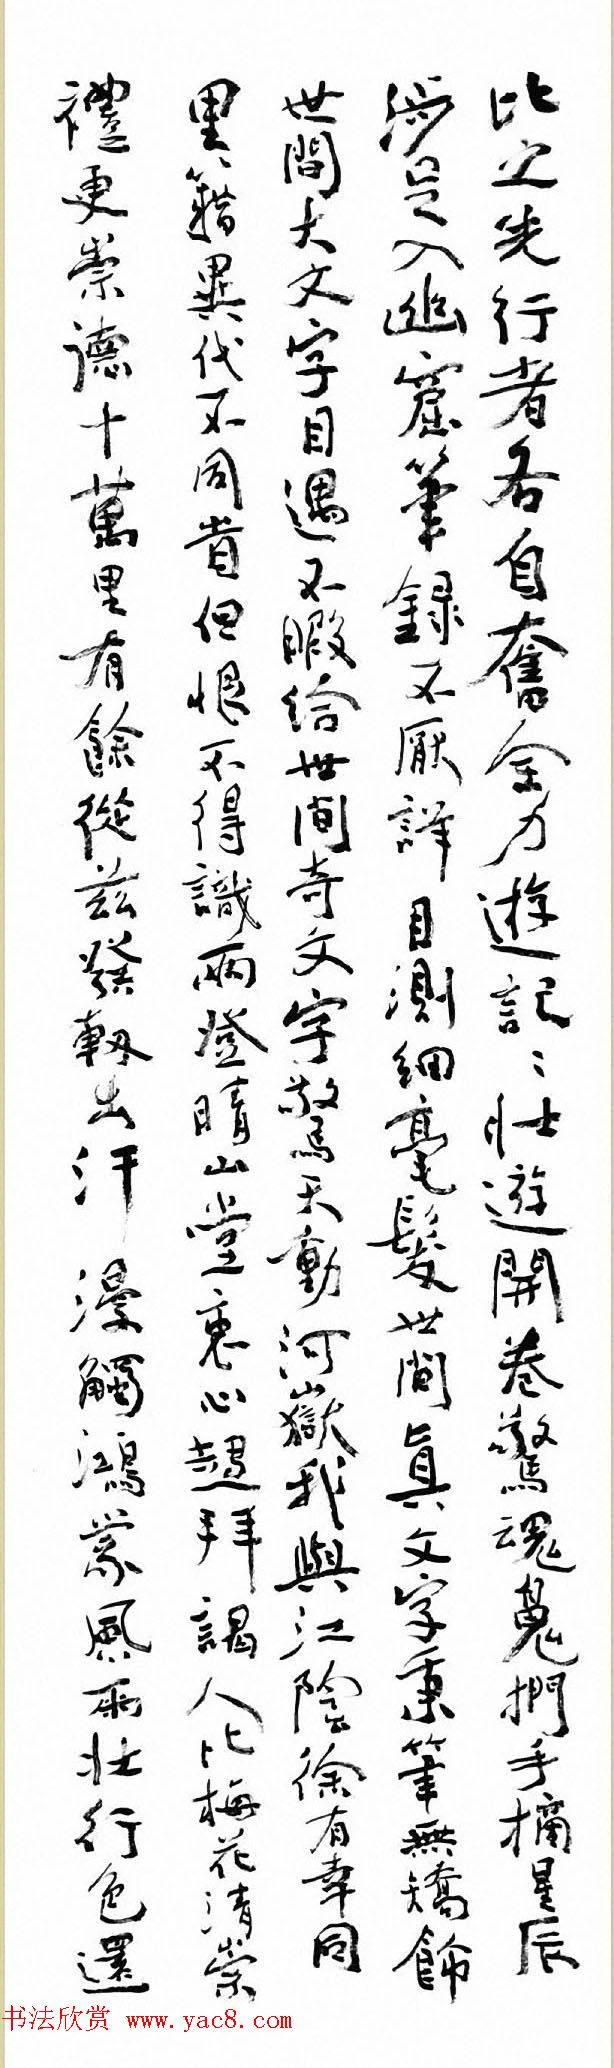 比之先行者各自奮全力遊記記壯遊開卷驚魂魄捫手摘星辰
涉足入幽窟筆錄不厭詳目測細毫髮世間真文字秉筆無矯飾
世間大文字目遇不暇給世間奇文字驚天動河嶽我與江陰徐有幸同
里籍異代不同昔但恨不得識兩登晴山堂衷心趨拜謁人比梅花清崇
禮更崇德十萬里有餘從茲發軔出汗漫觸鴻蒙風雨壯行色還
书法欣赏 www.yac8.com